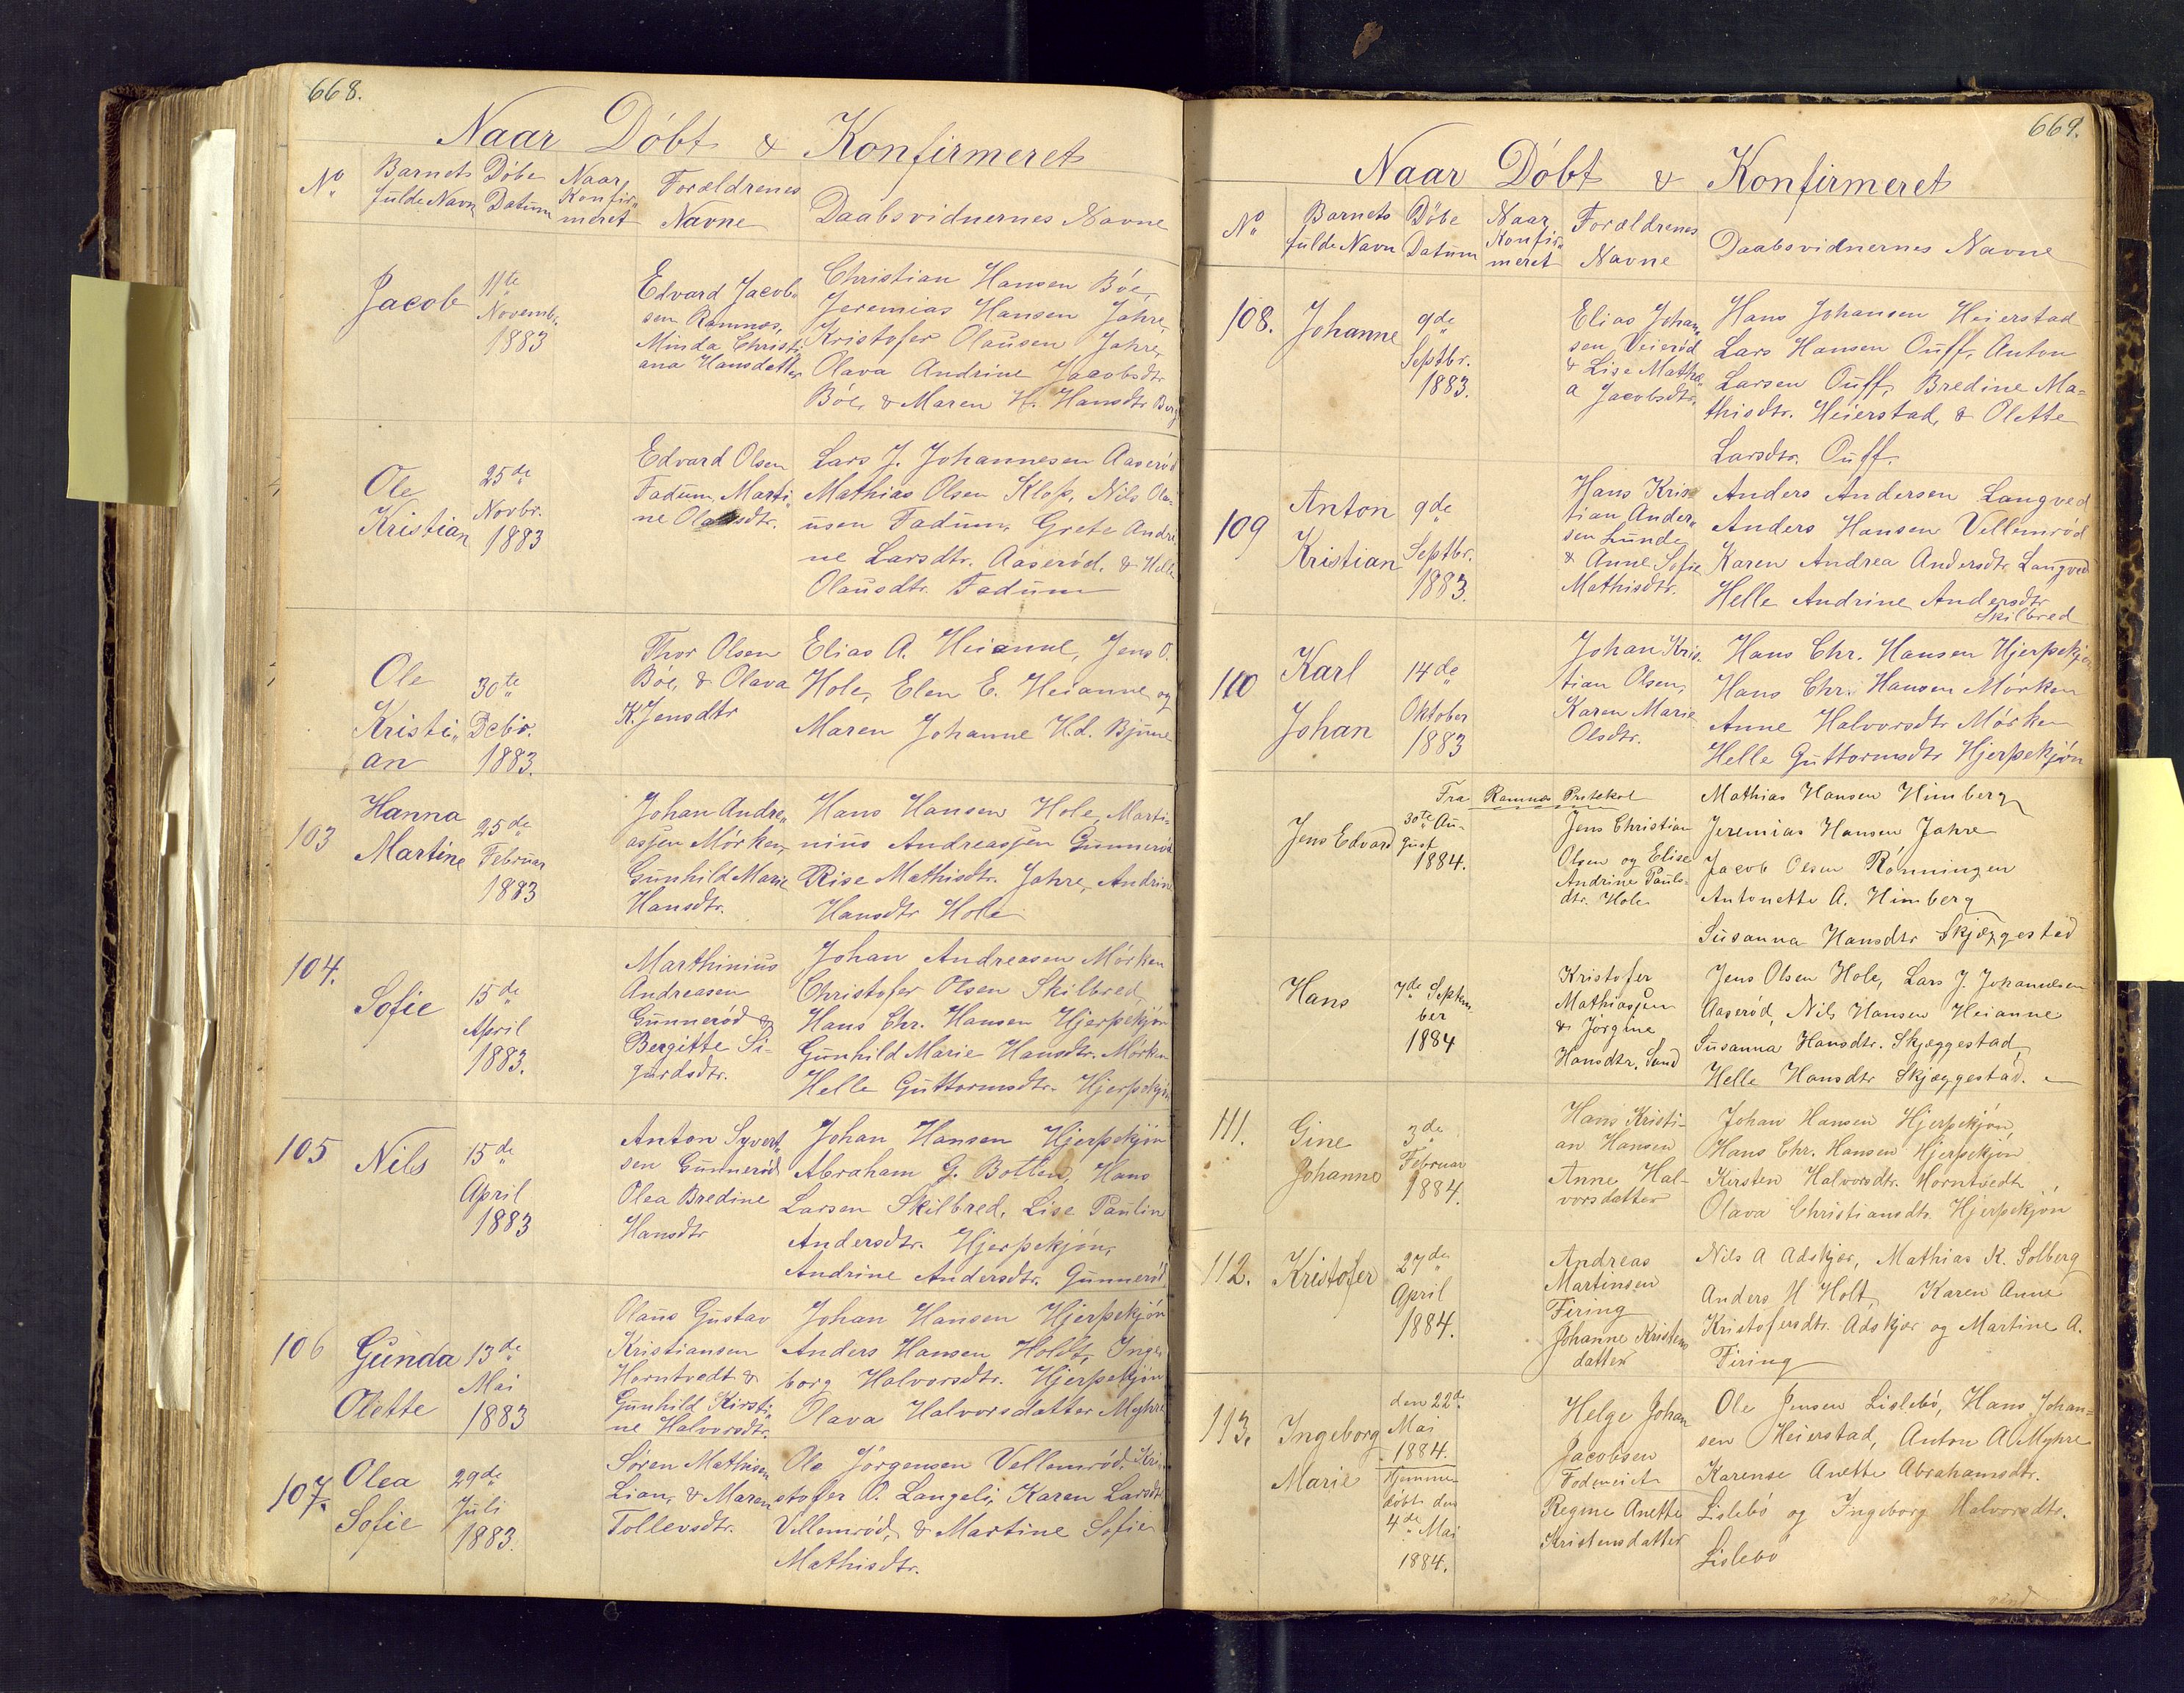 668.
Naar Döbt & Konfirmeret
No Barnets fulde Navn Döbe Datum Naar Konfir„meret Forældrenes Navne Daabsvidnernes Navne
Jacob
11te
Novemb.
1883
Edvard Jacob„
sen Ramnæs,
Minda Christi„
ana Hansdatter
Christian Hansen Böe,
Jeremias Hansen Jahre,
Kristofer Olausen Jahre,
Olava Andrine Jacobsdtr
Böe, & Maren H. Hansdtr Berg
Ole
Kristian
25de
Novbr.
1883
Edvard Olsen
Fadum, Marti„
ne Olausdtr.
Lars J. Johannesen Aaseröd
Mathias Olsen Klop, Nils Ola„
usen Fadum, Grete Andri
ne Larsdtr. Aaseröd. & Helle
Olausdtr. Fadum
Ole
Kristi„
an
30te
Debr.
1883.
Thor Olsen
Böe, & Olava
K. Jensdtr
Elias A. Heianne, Jens O.
Hole, Elen E. Heianne og
Maren Johanne H.d. Bjune
103
Hanna
Martine
25de
Februar
1883
Johan Andre„
asjen Mörken,
Gunhild Marie
Hansdtr.
Hans Hansen Hole, Marti-
nius Andreasjen Gunneröd
Rise Mathisdtr. Jahre, Andrine
Hansdtr Hole
104.
Sofie
15de
April
1883.
Marthinius
Andreasen
Gunneröd &
Bergitte Si-
gurdsdtr.
Johan Andreasen Mörken
Christofer Olsen Skilbred,
Hans Chr. Hansen Hjerpekjön
Gunhild Marie Hansdtr. Mörken
Helle Guttormsdtr. Hjerpekjön
105
Nils
15de
April
1883
Anton Syvert„
sen Gunneröd
Olea Bredine
Hansdtr
Johan Hansen Hjerpekjön
Abraham G. Botten, Hans
Larsen Skilbred, Lise Paulin
Andersdtr. Hjerpekjön,
Andrine Andersdtr. Gunneröd
106
Gunda
Olette
13de
Mai
1883
Olaus Gustav
Kristiansen
Horntvedt &
Gunhild Kirsti„
ne Halvorsdtr.
Johan Hansen Hjerpekjön
Anders Hansen Holdt, Inge
borg Halvorsdtr. Hjerpekjön
Olava Halvorsdatter Myhre
107.
Olea
Sofie
29de
Juli
1883.
Sören Mathisen
Lian, & Maren
Tollevsdtr.
Ole Jörgensen Vellemröd, Kri„
stofer O. Langeli, Karen Larsdtr
Vellemröd, & Martine Sofie
Mathisdtr.
669.
Naar Döbt & Konfirmeret
No Barnets fulde Navn Döbe Datum Naar Konfir„meret Forældrenes Navne Daabsvidnernes Navne
108.
Johanne
9de
Septbr.
1883.
Elias Johan„
sen Veieröd
& Lise Mathe„
a Jacobsdtr.
Hans Johansen Heierstad
Lars Hansen Ouff, Anton
Larsen Ouff, Bredine Ma-
thisdtr. Heierstad, & Olette
Larsdtr. Ouff.
109
Anton
Kristian
9de
Septbr.
1883.
Hans Kris
tian Ander„
sen Lunde
& Anne Sofie
Mathisdtr.
Anders Andersen Langved
Anders Hansen Vellemröd
Karen Andrea Andersdtr Langved
Helle Andrine Andersdtr
Skilbred
110
Karl
Johan
14de
Oktober
1883
Johan Kris„
tian Olsen,
Karen Marie
Olsdtr.
Hans Chr. Hansen Hjerpekjön
Hans Chr. Hansen Mörken
Anne Halvorsdtr Mörken
Helle Guttormsdtr Hjerpekjön
Fra Ramnes Protokol
Jens Edvard
30te Au-
gust
1884.
Jens Christian
Olsen og Elise
Andrine Pauls-
dtr. Hole
Mathias Hansen Himberg
Jeremias Hansen Jahre
Jacob Olsen Rönningen
Antonette A. Himberg
Susanna Hansdtr Skjæggestad
Hans
7de Septem
ber
1884
Kristofer
Mathiasjen
& Jörgine
Hansdtr. Sund
Jens Olsen Hole, Lars J. Johannesen
Aaseröd, Nils Hansen Heianne
Susanna Hansdtr. Skjæggestad,
Helle Hansdtr Skjæggestad.
111.
Gine
Johanne
3de
Februar
1884.
Hans Kristi-
an Hansen
Anne Hal-
vorsdatter
Johan Hansen Hjerpekjön,
Hans Chr. Hansen Hjerpekjön
Kirsten Halvorsdtr. Horntvedt
Olava Christiansdtr. Hjerpekjön
112.
Kristofer
27de
April
1884.
Andreas
Martinsen
Firing
Johanne Kristens
datter
Nils A Adskjer, Mathias K. Solberg
Anders H Holt, Karen Anne
Kristofersdtr. Adskjer og Martine A.
Firing
113.
Ingeborg
Marie
den 22de
Mai
1884.
Hjemme
döbt den
4de Mai
1884.
Helge Johan
Jacobsen
Fodeneiet
Regine Anette
Kristensdatter
Ole Jensen Lislebö, Hans Johan=
sen Heierstad, Anton A Myhre
Karense Anette Abrahamsdtr.
Lislebö og Ingeborg Halvorsdtr.
Lislebö